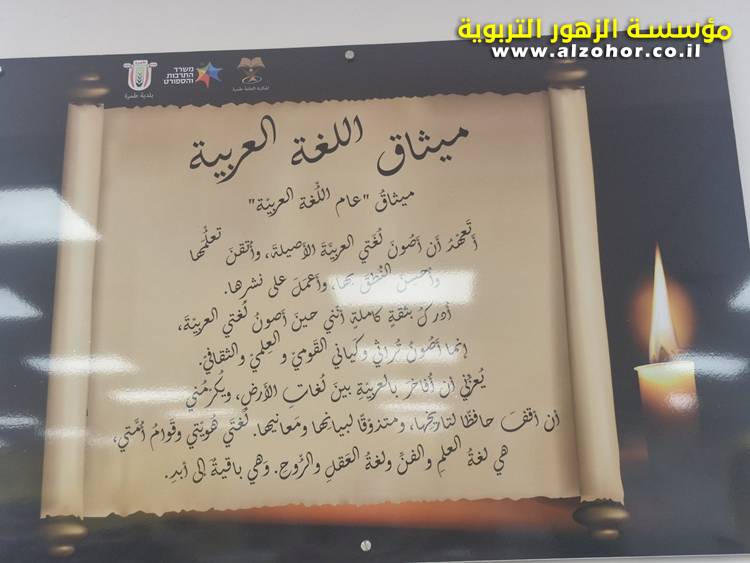 مؤسسة الزهور التربوية
www.alzohor.co.il
משרד
התרבות
והספורט
بلدية طمرة
المكتبة العامة طمرة
ميثاق اللغة العربية
ميثاقُ "عام اللُّغة العربيّة"
أَتعهّدُ أن أصُونَ لُغَتي العربيَّةَ الأصيلةَ، وأُتقنَ تعلُّمها
وأُحسِنَ النُّطقَ بها، وأَعملَ على نشرها.
أدركُ بثقةٍ كاملةٍ أنّني حينَ أصونُ لُغتي العربيّةَ،
إنما أصُونُ تُراثي وكياني القَوميّ و العِلميّ والثقافيّ.
يُعزّني أن أُفاخرَ بالعربيّةِ بينَ لُغاتِ الأرضِ، ويُكرّمُني
أن أقفَ حافظًا لتاريخِها، ومتذوّقًا لبيانِها ومَعانيها. لُغَتي هُويّتي وقَوامُ أمّتي،
هي لغةُ العلمِ والفنِّ ولغةُ العَقلِ والرُّوحِ. وَهي باقيةٌ إلى أبدٍ.